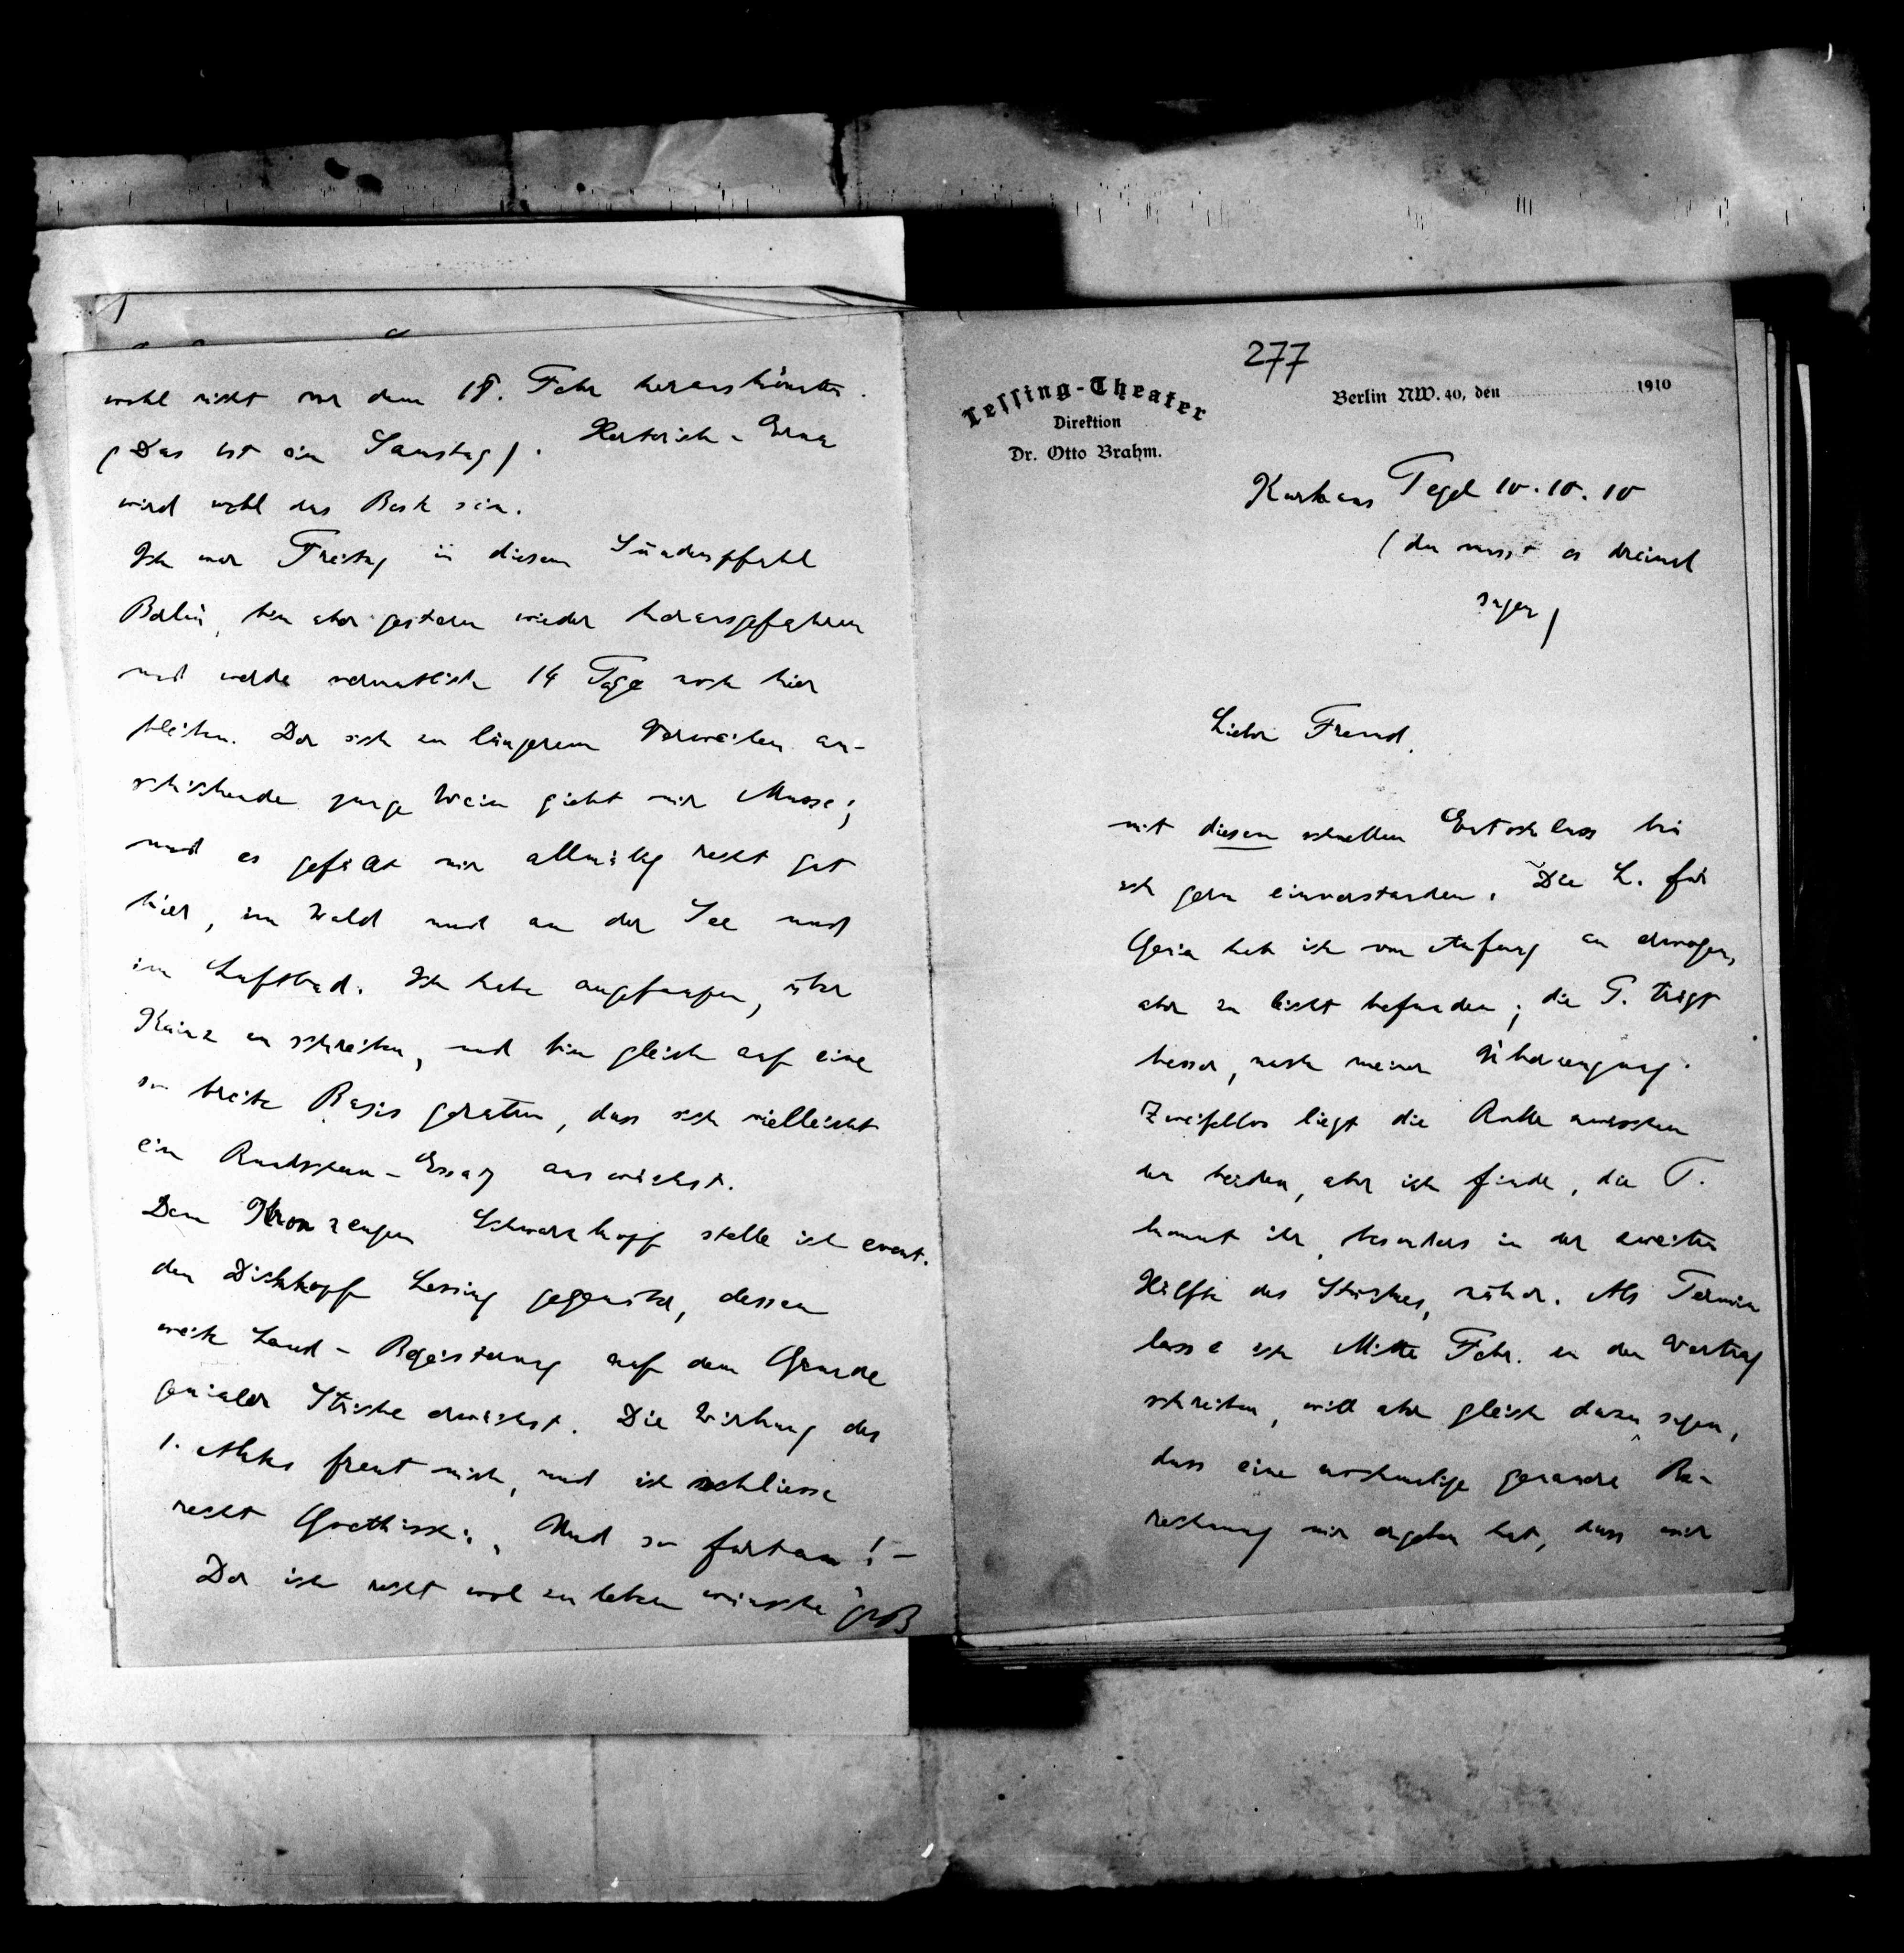 277
Lessing-Theater
Direktion
Dr. Otto Brahm.
Berlin NW. 40, den 1910
Kurhaus Tegel 10. 10. 10
(du musst es dreimal
sagen)
Lieber Freund,
mit diesem schnellen Entschluss bin
ich gern einverstanden. Die L. für
Genia hab ich von Anfang an erwogen,
aber zu leicht befunden; die T. trägt
besser, nach meiner Überzeugung.
Zweifellos liegt die Rolle zwischen
den beiden, aber ich finde, die T.
kommt ihr, besonders in der zweiten
Hälfte des Stückes, näher. Als Termin
lasse ich Mitte Febr. in den Vertrag
schreiben, will aber gleich dazu sagen,
dass eine nochmalige genaue Be-
rechnung mir ergeben hat, dass wir
wohl nicht vor dem 18. Febr herauskönnten.
(Das ist ein Samstag). Herterich-Erna
wird wohl das Beste sein.
Ich war Freitag in diesem Sündenpfuhl
Berlin, bin aber gestern wieder herausgefahren
und werde vermutlich 14 Tage noch hier
bleiben. Der sich zu längerem Verweilen an-
schickende junge Wein giebt mir Musse;
und es gefällt mir allmälig recht gut
hier, im Wald und an der See und
im Luftbad. Ich habe angefangen, über
Kainz zu schreiben, und bin gleich auf eine
so breite Basis geraten, dass sich vielleicht
ein Rundschau-Essay auswächst.
Dem Kronzeugen Schwarzkopf stelle ich event.
den Dickkopf Lessing gegenüber, dessen
weite Land-Begeisterung auf dem Grunde
genialer Striche erwächst. Die Wirkung des
1. Aktes freut mich, und ich schliesse
recht Goethisch: „Und so fortan! –
Der ich recht wol zu leben wünsche
OB